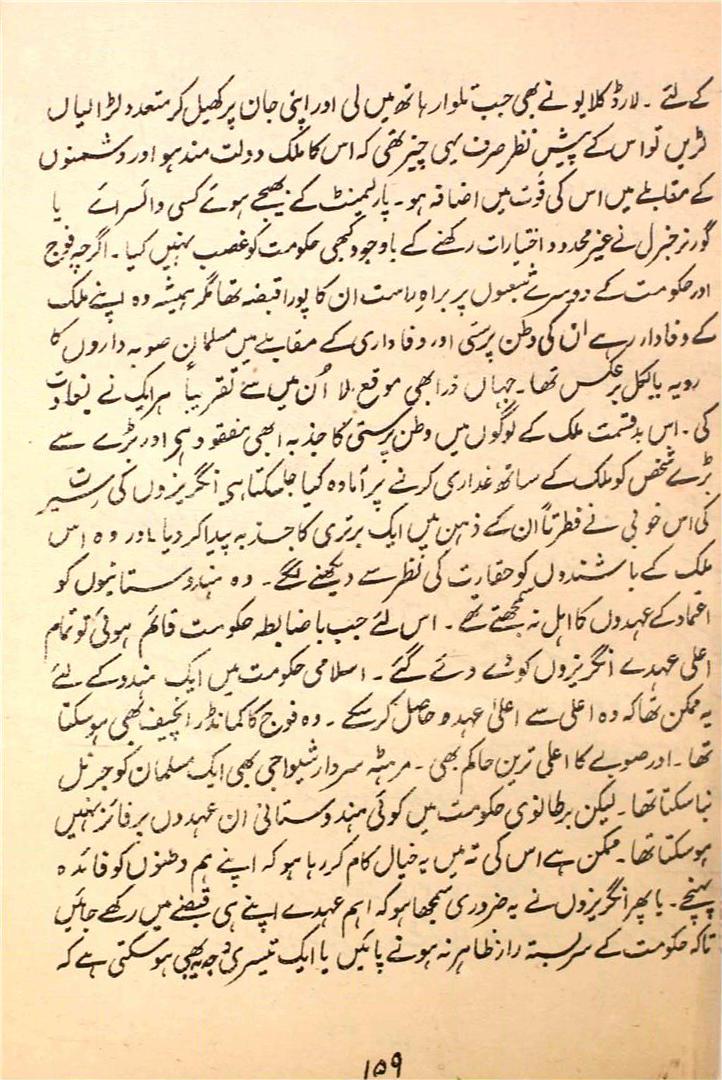 کے لئے ۔ لارڈ کلایو نے بھی جب تلوار ہاتھ میں لی اور اپنی جان پر کھیل کر متعدد لڑائیاں
لڑیں تو اس کے پیش نظر صرف یہی چیز تھی کہ اس کا ملک دولت مند ہو اور دشمنوں
کے مقابلے میں اس کی قوت میں اضافہ ہو ۔ پارلیمنٹ کے بھیجے ہوئے کسی وائسرائے یا
گورنر جنرل نے غیر محدود اختیارات رکھنے کے باوجود کبھی حکومت کو غصب نہیں کیا ۔ اگرچہ فوج
اور حکومت کے دوسرے شعبوں پر براہ راست ان کا پورا قبضہ تھا مگر ہمیشہ وہ اپنے ملک
کے وفادار رہے ان کی وطن پرستی اور وفاداری کے مقابلے میں مسلمان صوبہ داروں کا
رویہ بالکل برعکس تھا ۔ جہاں ذرا بھی موقع ملا اُن میں سے تقریباً ہر ایک نے بغاوت
کی ۔ اس بدقسمت ملک کے لوگوں میں وطن پرستی کا جذبہ ابھی مفقود ہے اور بڑے سے
بڑے شخص کو ملک کے ساتھ غداری کرنے پر آمادہ کیا جا سکتا ہے انگریزوں کی سیرت
کی اس خوبی نے فطرتاً ان کے ذہن میں ایک برتری کا جذبہ پیدا کر دیا ۔ اور وہ اس
ملک کے باشندوں کو حقارت کی نظر سے دیکھنے لگے ۔ وہ ہندوستانیوں کو
اعتماد کے عہدوں کا اہل نہ سمجھتے تھے ۔ اس لئے جب باضابطہ حکومت قائم ہوئی تو تمام
اعلی عہدے انگریزوں کو دے دئے گئے ۔ اسلامی حکومت میں ایک ہندو کے لئے
یہ ممکن تھا کہ وہ اعلی سے اعلیٰ عہدہ حاصل کر سکے ۔ وہ فوج کا کمانڈر انچیف بھی ہو سکتا
تھا ۔ اور صوبے کا اعلی ترین حاکم بھی ۔ مرہٹہ سردار شیواجی بھی ایک مسلمان کو جرنل
بنا سکتا تھا ۔ لیکن برطانوی حکومت میں کوئی ہندوستانی ان عہدوں پر فائز نہیں
ہو سکتا تھا ۔ ممکن ہے اس کی تہ میں یہ خیال کام کر رہا ہو کہ اپنے ہم وطنوں کو فائدہ
پہنچے ۔ یا پھر انگریزوں نے یہ ضروری سمجھا ہو کہ اہم عہدے اپنے ہی قبضے میں رکھے جائیں
تاکہ حکومت کے سربستہ راز ظاہر نہ ہونے پائیں یا ایک تیسری وجہ یہ بھی ہو سکتی ہے کہ
۱۵۹